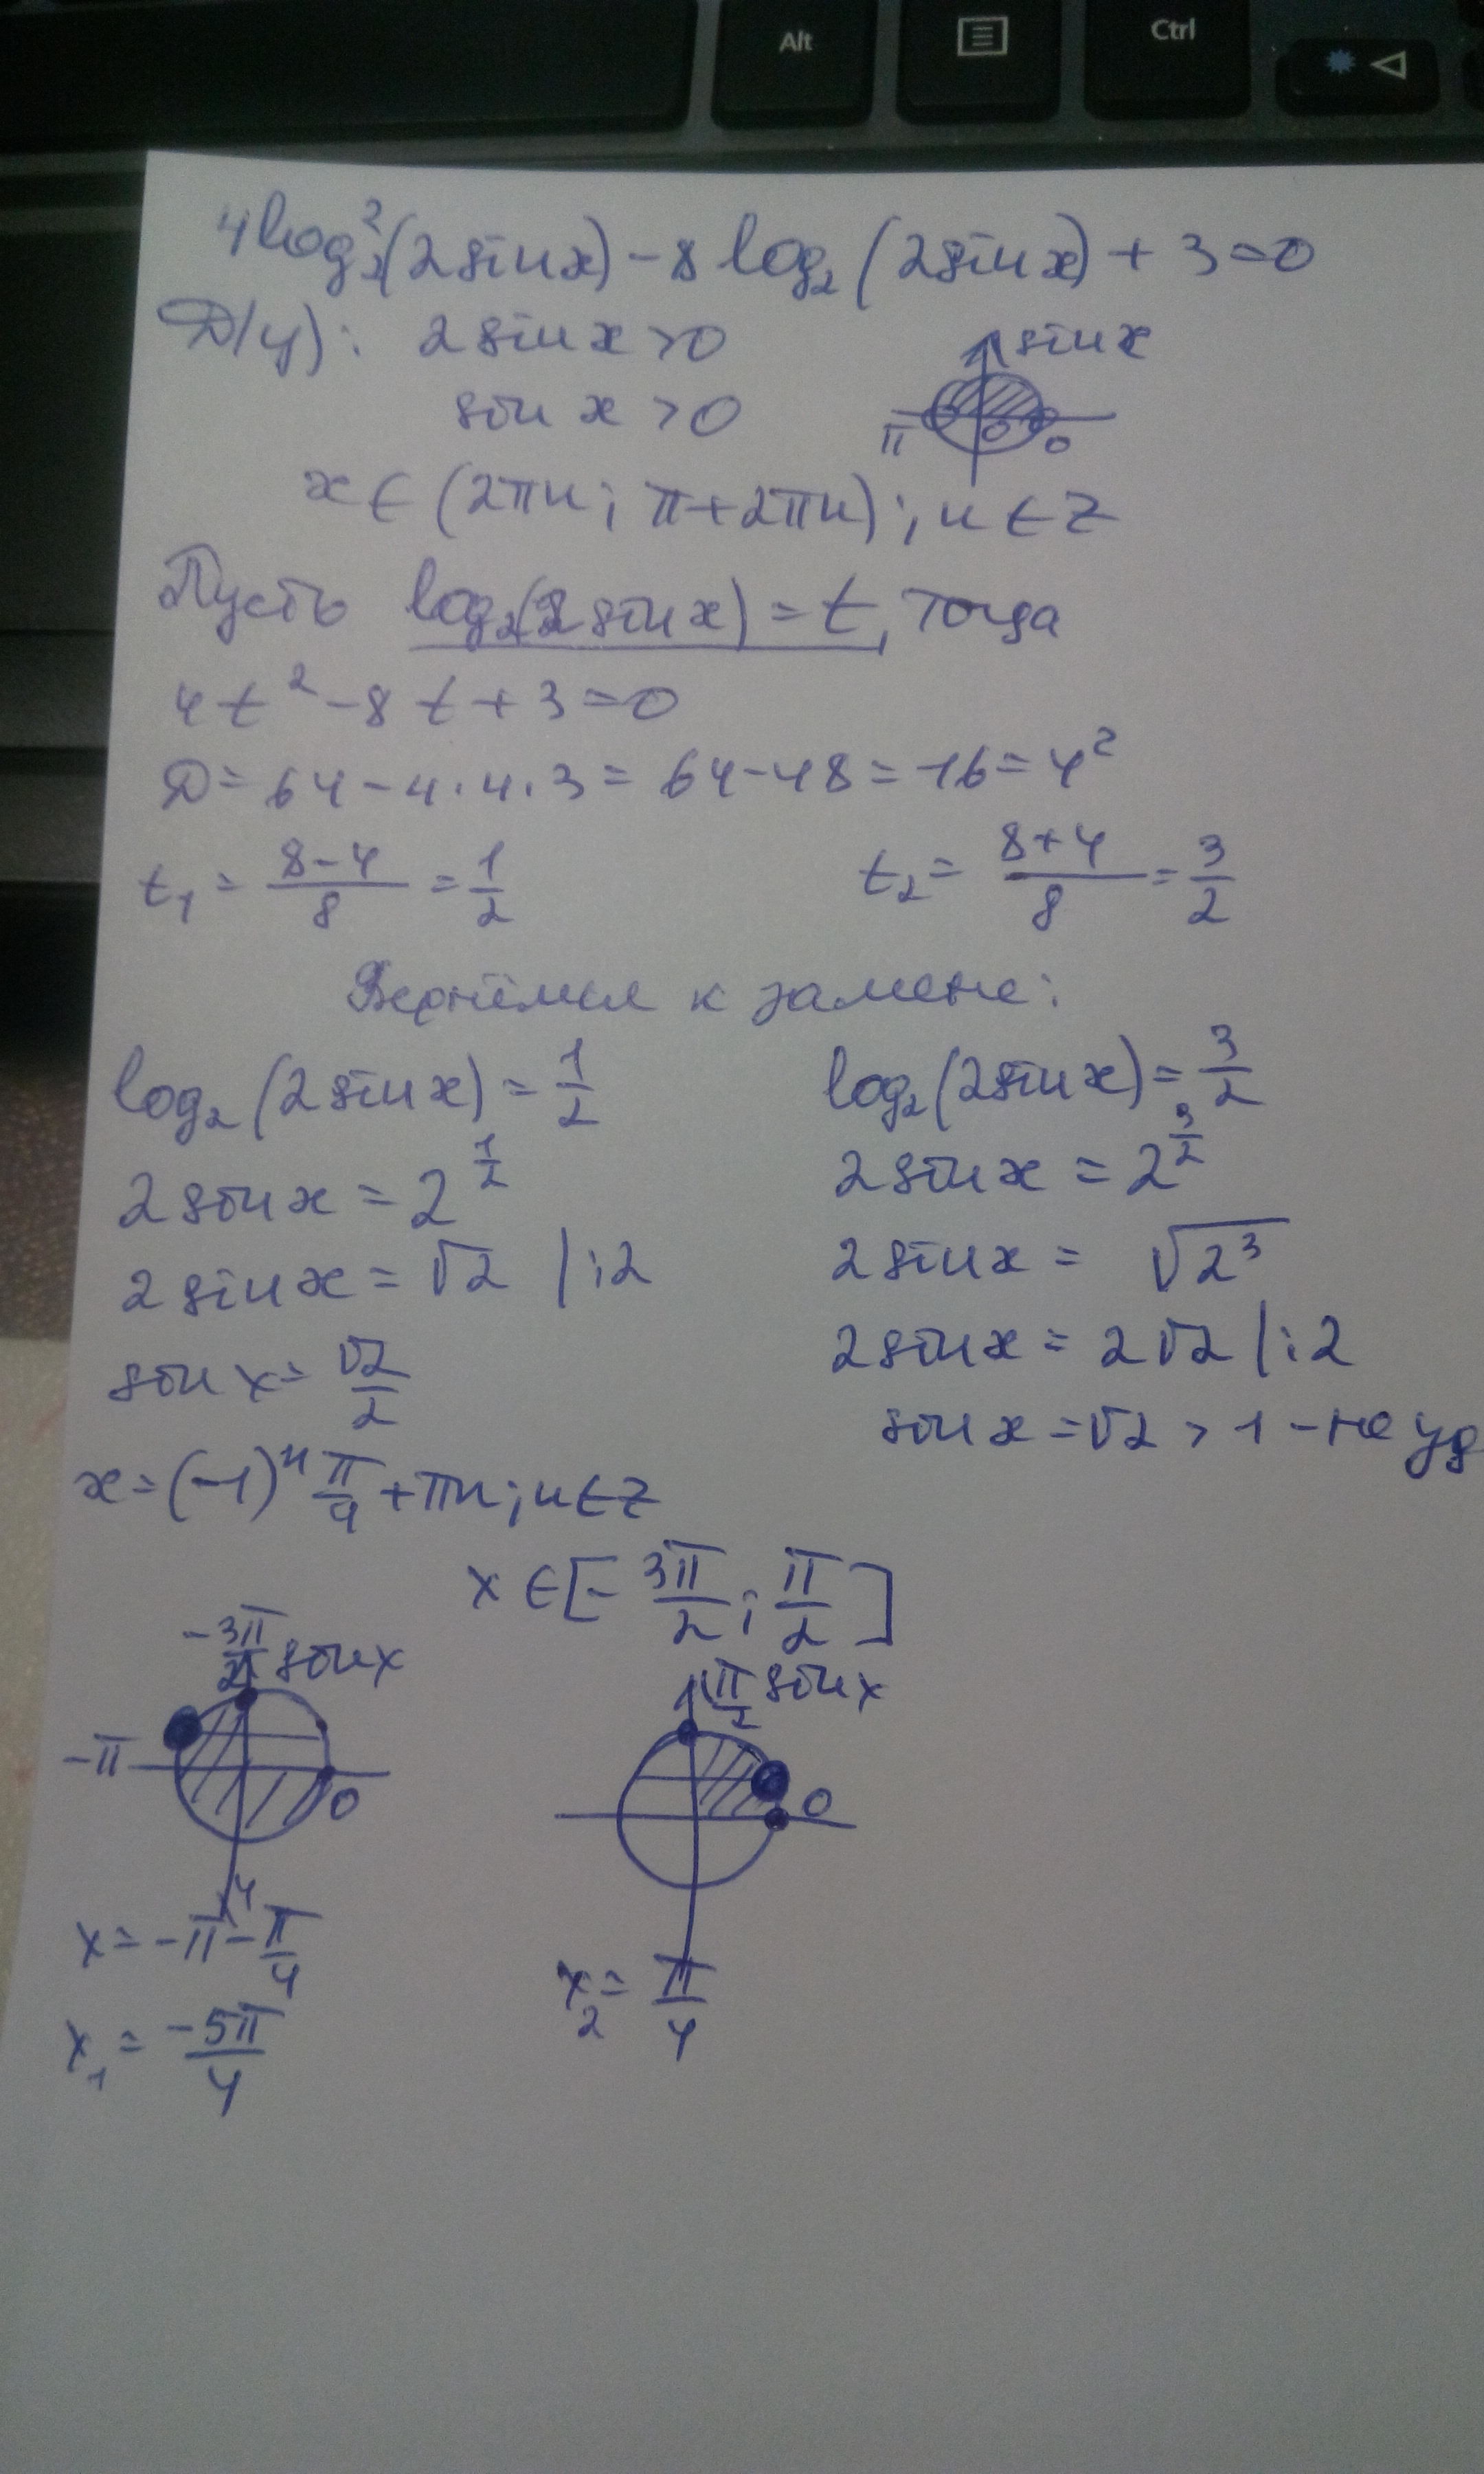 Alt
Ctrl
4log₂²(2sinx)-8log₂(2sinx)+3=0
D(y): 2sinx>0
sinx
sinx>0
π 0 0
x∈(2πn; π+2πn); n∈Z
Пусть log₂(2sinx)=t, тогда
4t²-8t+3=0
D=64-4·4·3=64-48=16=4²
t₁=(8-4)/8=1/2
t₂=(8+4)/8=3/2
Вернёмся к замене:
log₂(2sinx)=1/2
2sinx=2^(1/2)
2sinx=√2 |:2
sinx=√2/2
x=(-1)ⁿ π/4+πn; n∈Z
log₂(2sinx)=3/2
2sinx=2^(3/2)
2sinx=√2³
2sinx=2√2 |:2
sinx=√2>1-не уд
x∈[-3π/2; π/2]
-3π/2 sinx
-π 0
x=-π-π/4
x₁=-5π/4
π/2 sinx
0
x₂=π/4